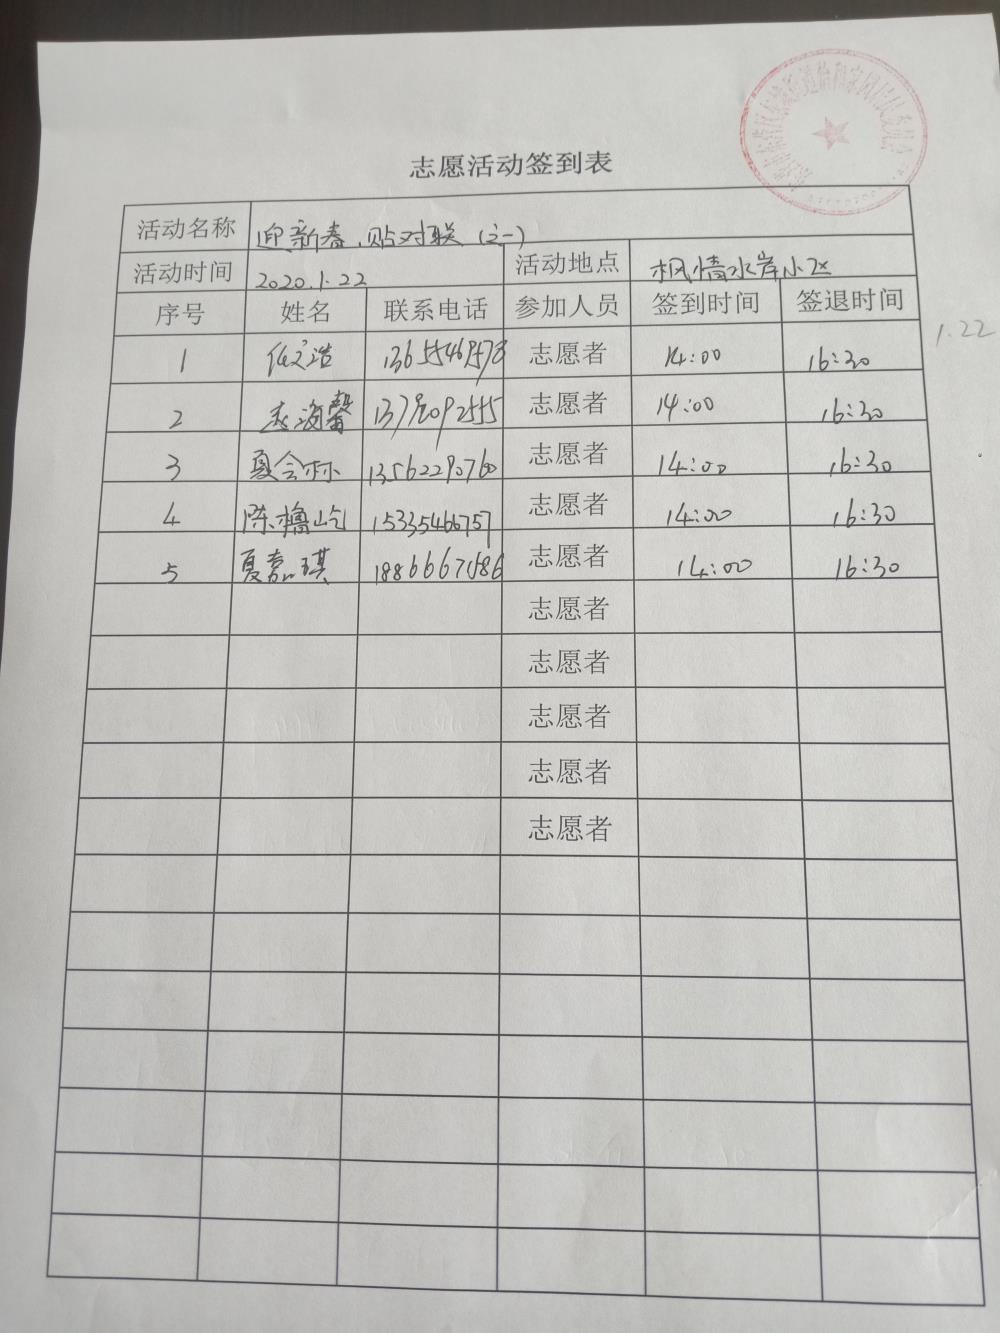 志愿活动签到表
活动名称 迎新春、贴对联(之一)
活动时间 2020.1.22 活动地点 枫情水岸小区
序号 姓名 联系电话 参加人员 签到时间 签退时间
1.22
1 任文浩 13655469578 志愿者 14:00 16:30
2 海馨 志愿者 14:00 16:30
3 夏会林 13562290760 志愿者 14:00 16:30
4 陈橹屹 15335466757 志愿者 14:00 16:30
5 夏嘉琪 18866667586 志愿者 14:00 16:30
志愿者
志愿者
志愿者
志愿者
志愿者